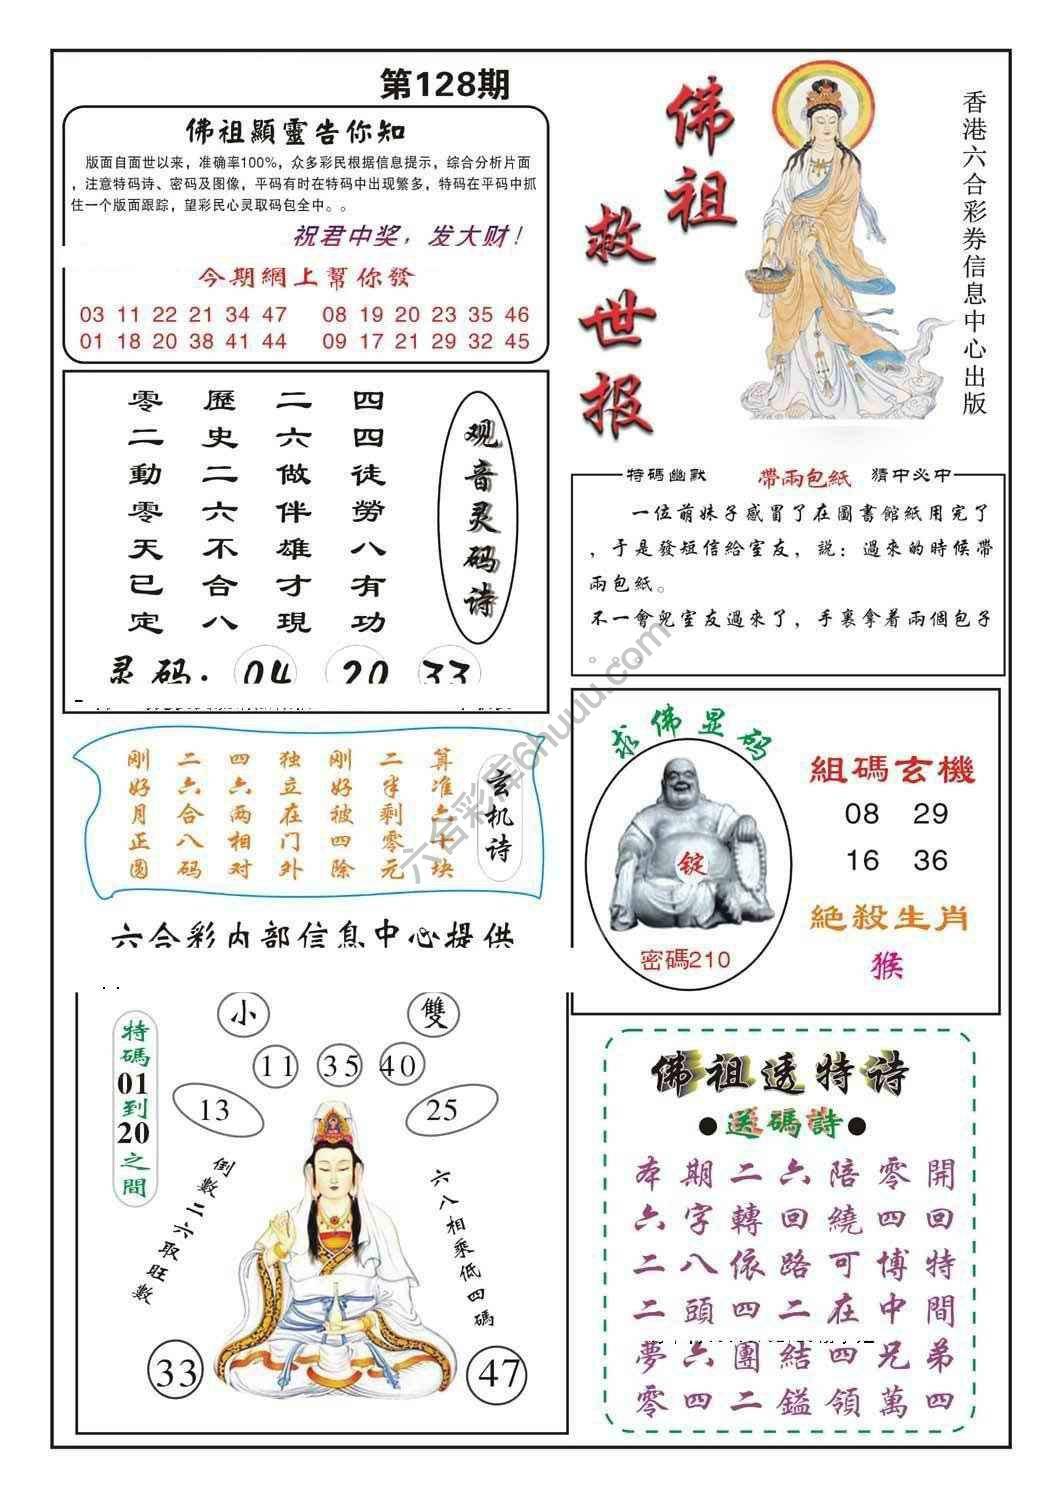 第128期
佛祖顯靈告你知
版面自面世以来，准确率100%，众多彩民根据信息提示，综合分析片面
，注意特码诗、密码及图像，平码有时在特码中出现繁多，特码在平码中抓
住一个版面跟踪，望彩民心灵取码包全中。。
祝君中奖，发大财！
今期網上幫你發
03 11 22 21 34 47 08 19 20 23 35 46
01 18 20 38 41 44 09 17 21 29 32 45
佛祖救世报
香港六合彩券信息中心出版
观音灵码诗
四四徒勞八有功
二六做伴雄才現
歷史二六不合八
零二動零天已定
灵码：04 20 33
特碼幽默 帶兩包紙 猜中必中
一位萌妹子感冒了在圖書館紙用完了
，于是發短信給室友，説：過來的時候帶
兩包紙。
不一會兒室友過來了，手裏拿着兩個包子
。 。
玄机诗
算准六十块
二半剩零元
刚好被四除
独立在门外
四六两相对
二六合八码
刚好月正圆
六合彩内部信息中心提供
求佛显码
錠
密碼210
組碼玄機
08 29
16 36
絕殺生肖
猴
特碼01到20之間
小 雙
11 35 40
13 25
倒數二六取旺數
六八相乘低四碼
33 47
佛祖透特诗
●送碼詩●
本期二六陪零開
六字轉回繞四回
二八依路可博特
二頭四二在中間
夢六團結四兄弟
零四二鎰領萬四
六合彩库6huuu.com